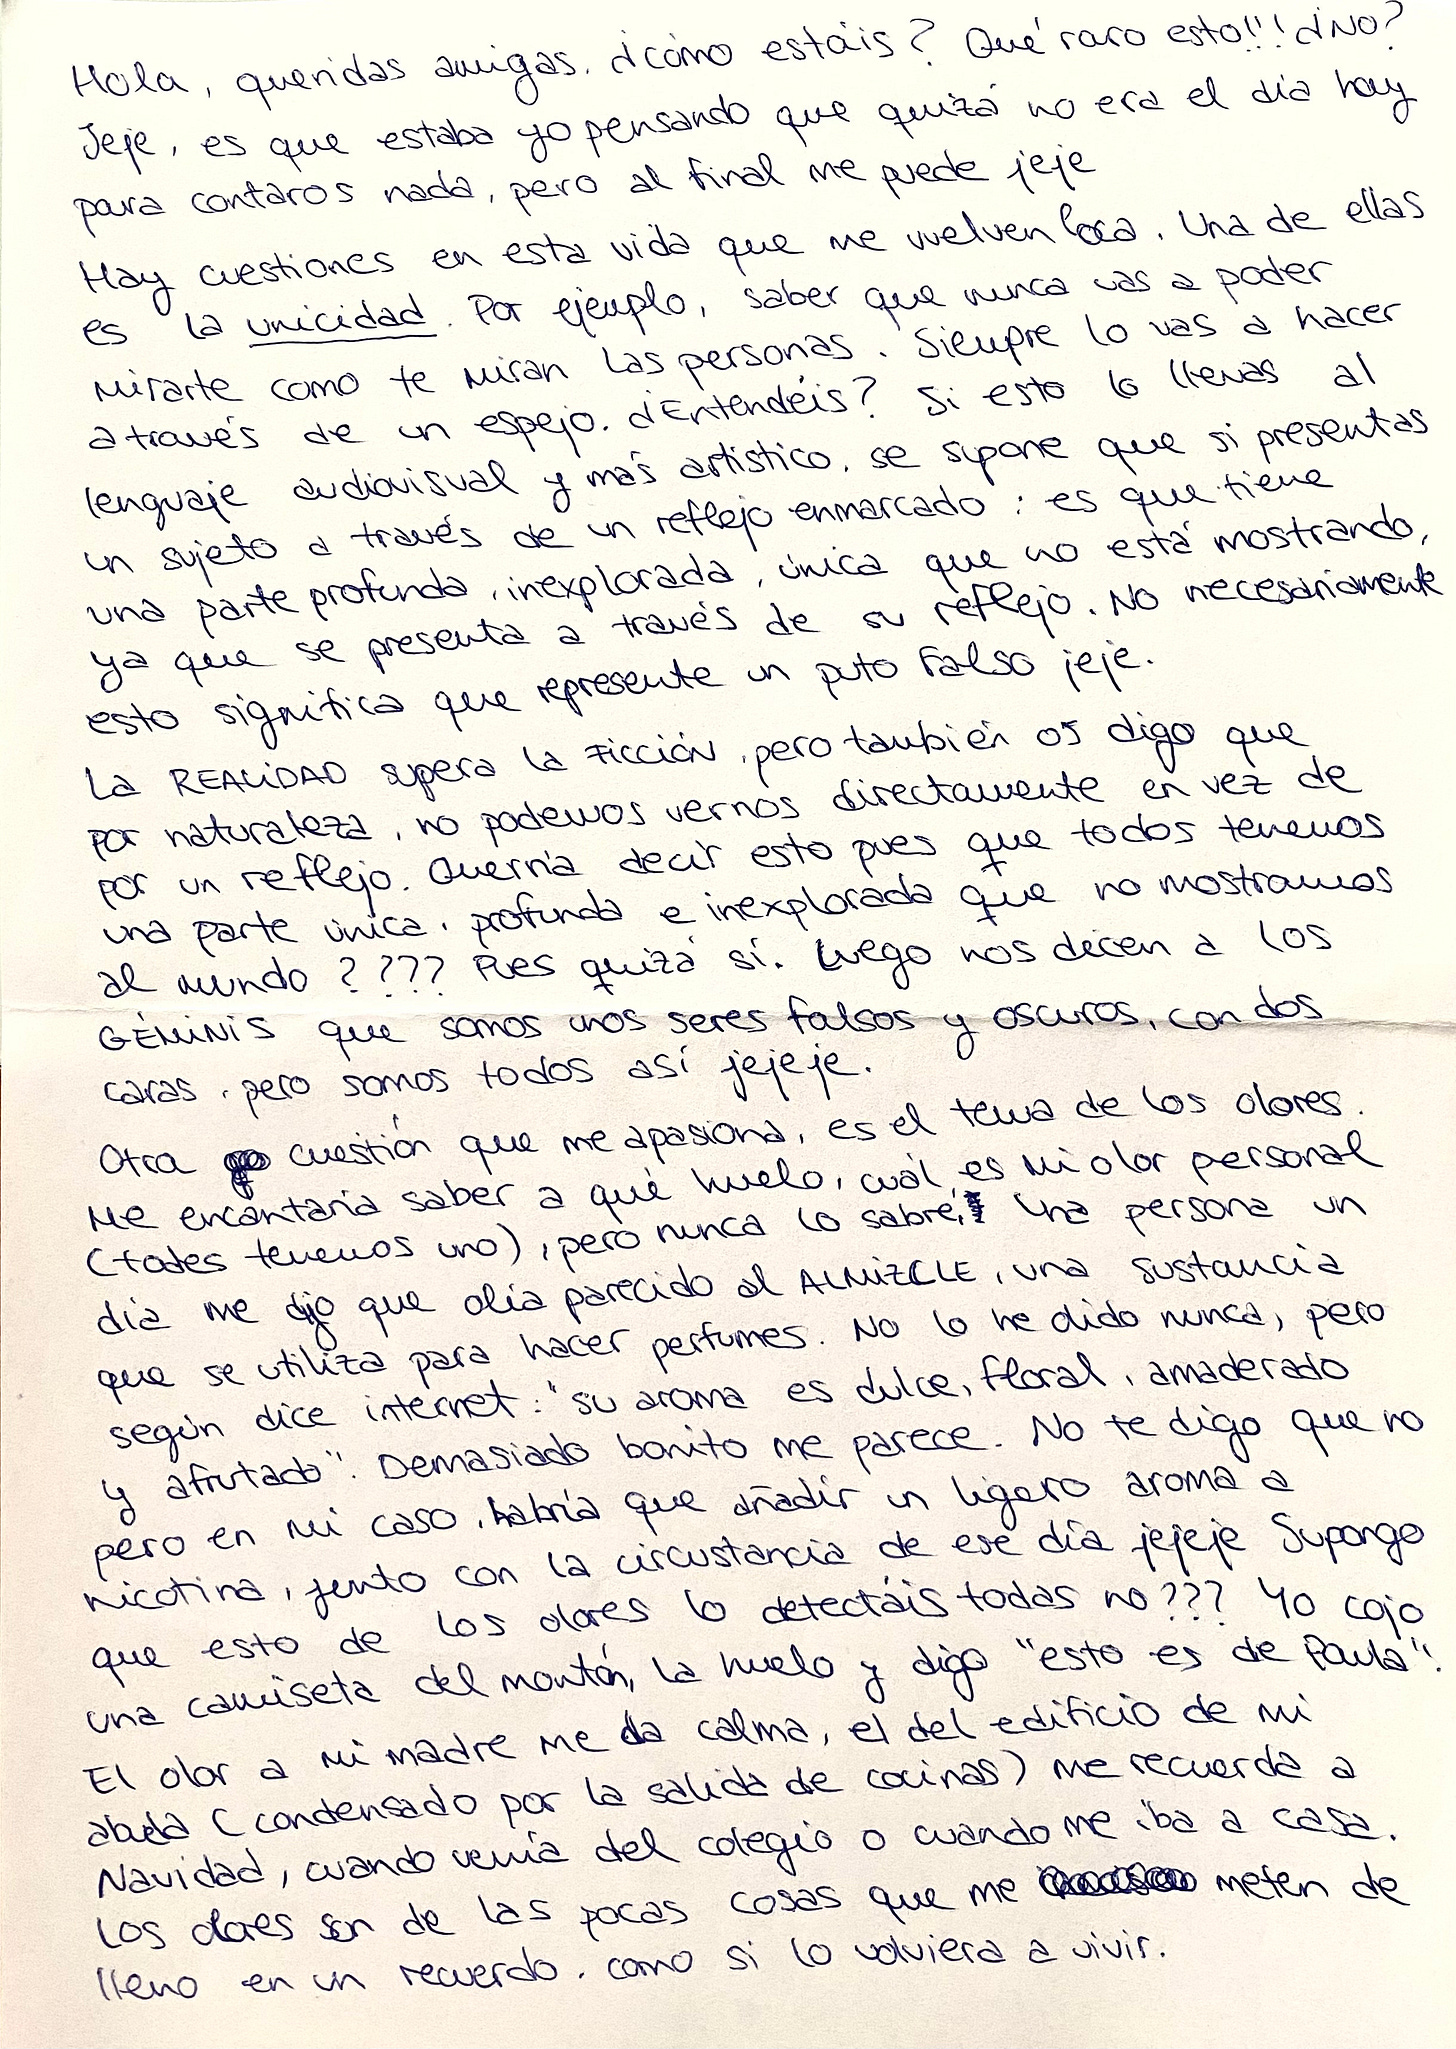 Hola, queridas amigas. ¿cómo estáis? Qué raro esto!!! ¿No?
Jeje, es que estaba yo pensando que quizá no era el día hoy
para contaros nada, pero al final me puede jeje
Hay cuestiones en esta vida que me vuelven loca. Una de ellas
es la unicidad. Por ejemplo, saber que nunca vas a poder
mirarte como te miran las personas. Siempre lo vas a hacer
a través de un espejo. ¿Entendéis? Si esto lo llevas al
lenguaje audiovisual y más artístico, se supone que si presentas
un sujeto a través de un reflejo enmarcado : es que tiene
una parte profunda, inexplorada, única que no está mostrando,
ya que se presenta a través de su reflejo. No necesariamente
esto significa que represente un puto falso jeje.
La REALIDAD supera la FICCIÓN, pero también os digo que
por naturaleza, no podemos vernos directamente en vez de
por un reflejo. Querría decir esto pues que todos tenemos
una parte única, profunda e inexplorada que no mostramos
al mundo ???? Pues quizá sí. Luego nos dicen a los
GÉMINIS que somos unos seres falsos y oscuros, con dos
caras, pero somos todos así jejeje.
Otra cuestión que me apasiona, es el tema de los olores.
Me encantaría saber a qué huelo, cuál es mi olor personal
(todes tenemos uno), pero nunca lo sabré. Una persona un
día me dijo que olía parecido al ALMIZCLE, una sustancia
que se utiliza para hacer perfumes. No lo he olido nunca, pero
según dice internet: "su aroma es dulce, floral, amaderado
y afrutado". Demasiado bonito me parece. No te digo que no
pero en mi caso, habría que añadir un ligero aroma a
nicotina, junto con la circustancia de ese día jejeje Supongo
que esto de los olores lo detectáis todas no??? Yo cojo
una camiseta del montón, la huelo y digo "esto es de Paula".
El olor a mi madre me da calma, el del edificio de mi
abuela (condensado por la salida de cocinas) me recuerda a
Navidad, cuando venía del colegio o cuando me iba a casa.
Los olores son de las pocas cosas que me meten de
lleno en un recuerdo, como si lo volviera a vivir.